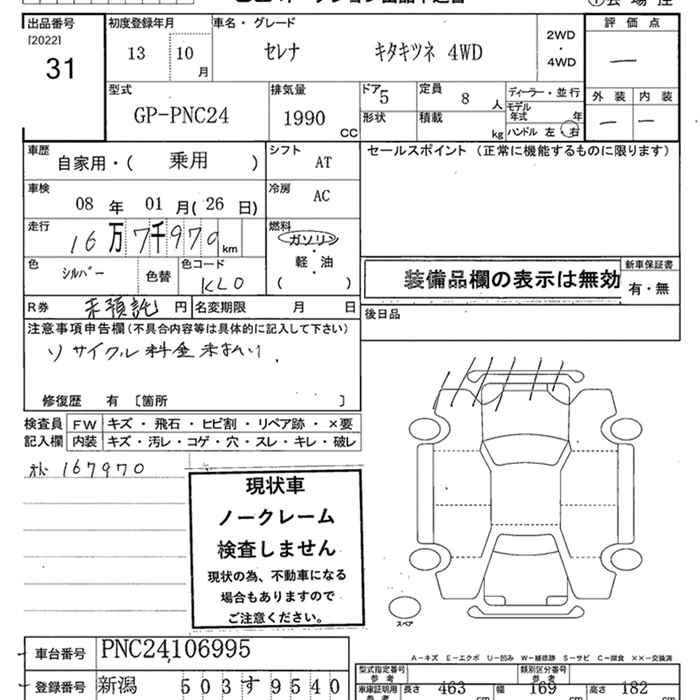 出品番号 初度登録年月 車名・グレード 評価点
[2022]
31
13 10 月 セレナ キタキツネ 4WD 2WD・4WD —
型式 排気量 ドア 定員 ディーラー・並行 外装 内装
GP-PNC24 1990 CC 5 8 人 モデル年式 年 — —
形状 積載 kg ハンドル 左 右
車歴 シフト セールスポイント (正常に機能するものに限ります)
自家用・( 乗用 ) AT
車検 冷房
08 年 01 月( 26 日) AC
走行 燃料
16万7千979 km ガソリン・軽・油
色 シルバー 色替 色コード KLO ( )
装備品欄の表示は無効 新車保証書 有・無
R券 未預託 円 名変期限 月 日 後日品
注意事項申告欄(不具合内容等は具体的に記入して下さい)
リサイクル料金未払い.
修復歴 有 〔箇所 〕
検査員記入欄 FW キズ・飛石・ヒビ割・リペア跡・×要
内装 キズ・汚レ・コゲ・穴・スレ・キレ・破レ
167970
現状車
ノークレーム
検査しません
現状の為、不動車になる
場合もありますので
ご注意ください。
スペア
車台番号 PNC24,106995
A－キズ E－エクボ U－凹み W－補修跡 S－サビ C－腐食 ××－交換済
型式指定番号 参考 類別区分番号 参考
登録番号 新潟 503 す 9540
車庫証明用 参考 長さ 463 cm 幅 169 cm 高さ 182 cm